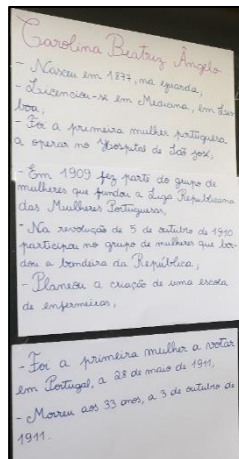 Carolina Beatriz Ângelo
- Nasceu em 1877, na guarda,
- Licenciou-se em Medicina, em Lis
boa;
- Foi a primeira mulher portuguesa
a operar no Hospital de São José;
- Em 1909 fez parte do grupo de
mulheres que fundou a Liga Republicana
das Mulheres Portuguesas;
- Na revolução de 5 de outubro de 1910
participou no grupo de mulheres que bor-
dou a bandeira da República;
- Planeou a criação de uma escola
de enfermeiras;
- Foi a primeira mulher a votar
em Portugal, a 28 de maio de 1911,
- Morreu aos 33 anos, a 3 de outubro de
1911.